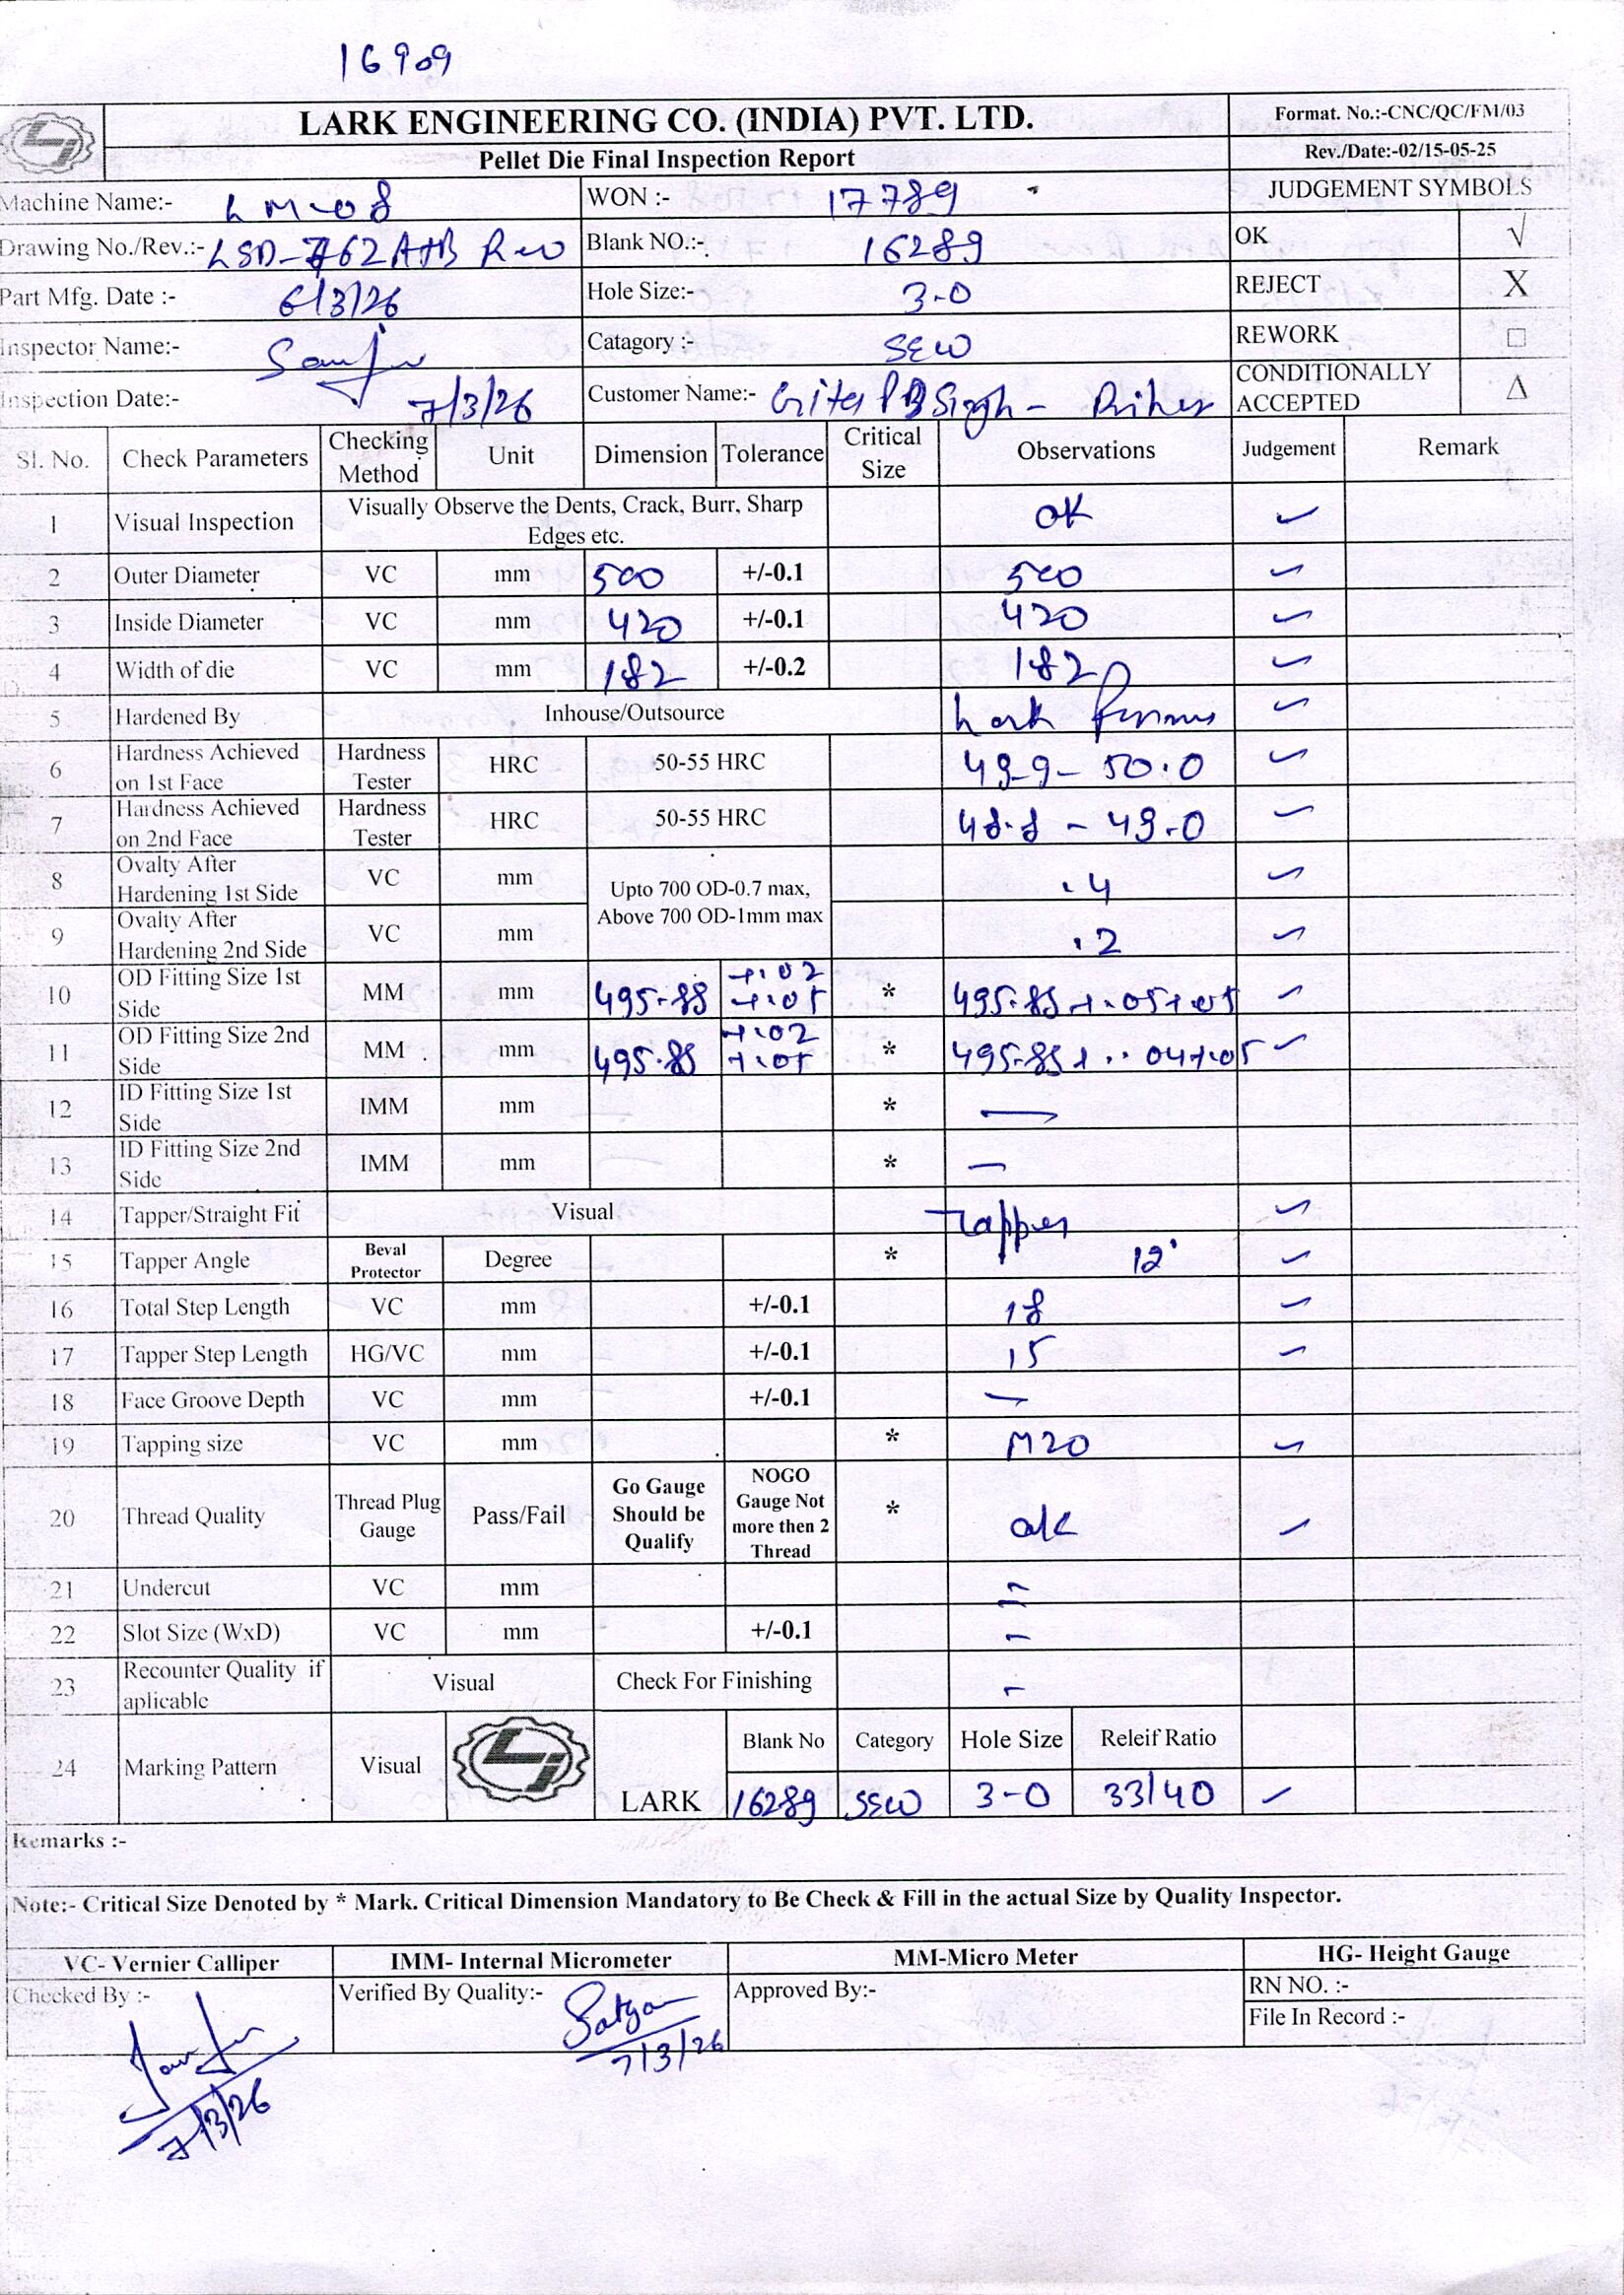 16909
LARK ENGINEERING CO. (INDIA) PVT. LTD.
Format. No.:-CNC/QC/FM/03
Pellet Die Final Inspection Report
Rev./Date:-02/15-05-25
Machine Name:- LM-08 WON :- 17789 JUDGEMENT SYMBOLS
Drawing No./Rev.:- LSD-762A+B Rev Blank NO.:- 16289 OK √
Part Mfg. Date :- 6/3/26 Hole Size:- 3-0 REJECT X
Inspector Name:- Catagory :- SEW REWORK □
Inspection Date:- 7/3/26 Customer Name:- Singh - CONDITIONALLY ACCEPTED Δ
Sl. No. Check Parameters Checking Method Unit Dimension Tolerance Critical Size Observations Judgement Remark
1 Visual Inspection Visually Observe the Dents, Crack, Burr, Sharp Edges etc. OK ✓
2 Outer Diameter VC mm 500 +/-0.1 500 ✓
3 Inside Diameter VC mm 420 +/-0.1 420 ✓
4 Width of die VC mm 182 +/-0.2 182 ✓
5 Hardened By Inhouse/Outsource Lark ✓
6 Hardness Achieved on 1st Face Hardness Tester HRC 50-55 HRC 49-9- 50.0 ✓
7 Hardness Achieved on 2nd Face Hardness Tester HRC 50-55 HRC 48.8 - 49.0 ✓
8 Ovalty After Hardening 1st Side VC mm Upto 700 OD-0.7 max, Above 700 OD-1mm max .4 ✓
9 Ovalty After Hardening 2nd Side VC mm .2 ✓
10 OD Fitting Size 1st Side MM mm 495.88 +.02 +.05 * 495.85 +.05+.05 ✓
11 OD Fitting Size 2nd Side MM mm 495.85 +.02 +.05 * 495.85+..04+.05 ✓
12 ID Fitting Size 1st Side IMM mm * —
13 ID Fitting Size 2nd Side IMM mm * —
14 Tapper/Straight Fit Visual Tapper ✓
15 Tapper Angle Beval Protector Degree * 12° ✓
16 Total Step Length VC mm +/-0.1 18 ✓
17 Tapper Step Length HG/VC mm +/-0.1 15 ✓
18 Face Groove Depth VC mm +/-0.1 —
19 Tapping size VC mm * M20 ✓
20 Thread Quality Thread Plug Gauge Pass/Fail Go Gauge Should be Qualify NOGO Gauge Not more then 2 Thread * ok ✓
21 Undercut VC mm —
22 Slot Size (WxD) VC mm +/-0.1 —
23 Recounter Quality if aplicable Visual Check For Finishing —
24 Marking Pattern Visual LARK Blank No Category Hole Size Releif Ratio
16289 SSW 3-0 33/40 ✓
Remarks :-
Note:- Critical Size Denoted by * Mark. Critical Dimension Mandatory to Be Check & Fill in the actual Size by Quality Inspector.
VC- Vernier Calliper IMM- Internal Micrometer MM-Micro Meter HG- Height Gauge
Checked By :- Verified By Quality:- Satyam Approved By:- RN NO. :-
7/3/26 File In Record :-
7/3/26